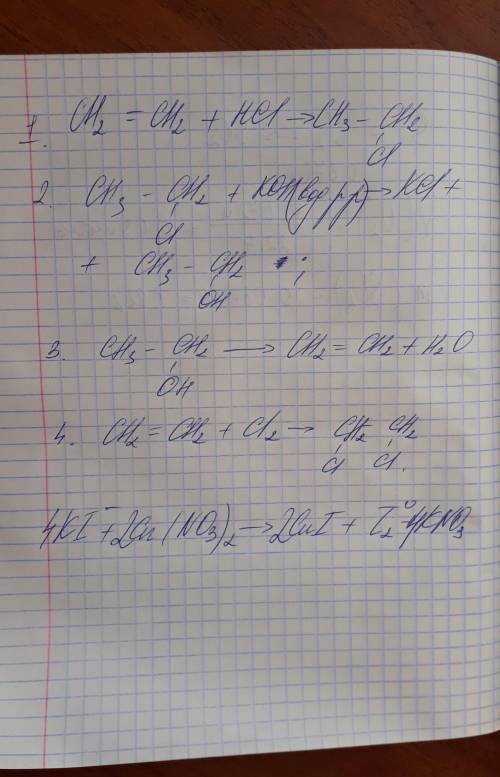 1. CH2 = CH2 + HCl → CH3 - CH2
Cl
2. CH3 - CH2 + KOH(вод р.р) → KCl +
Cl
+ CH3 - CH2 ;
OH
3. CH3 - CH2 → CH2 = CH2 + H2O
OH
4. CH2 = CH2 + Cl2 → CH2 CH2
Cl Cl.
4KI⁻ + 2Cu(NO3)2 → 2CuI + I2⁰ + 4KNO3